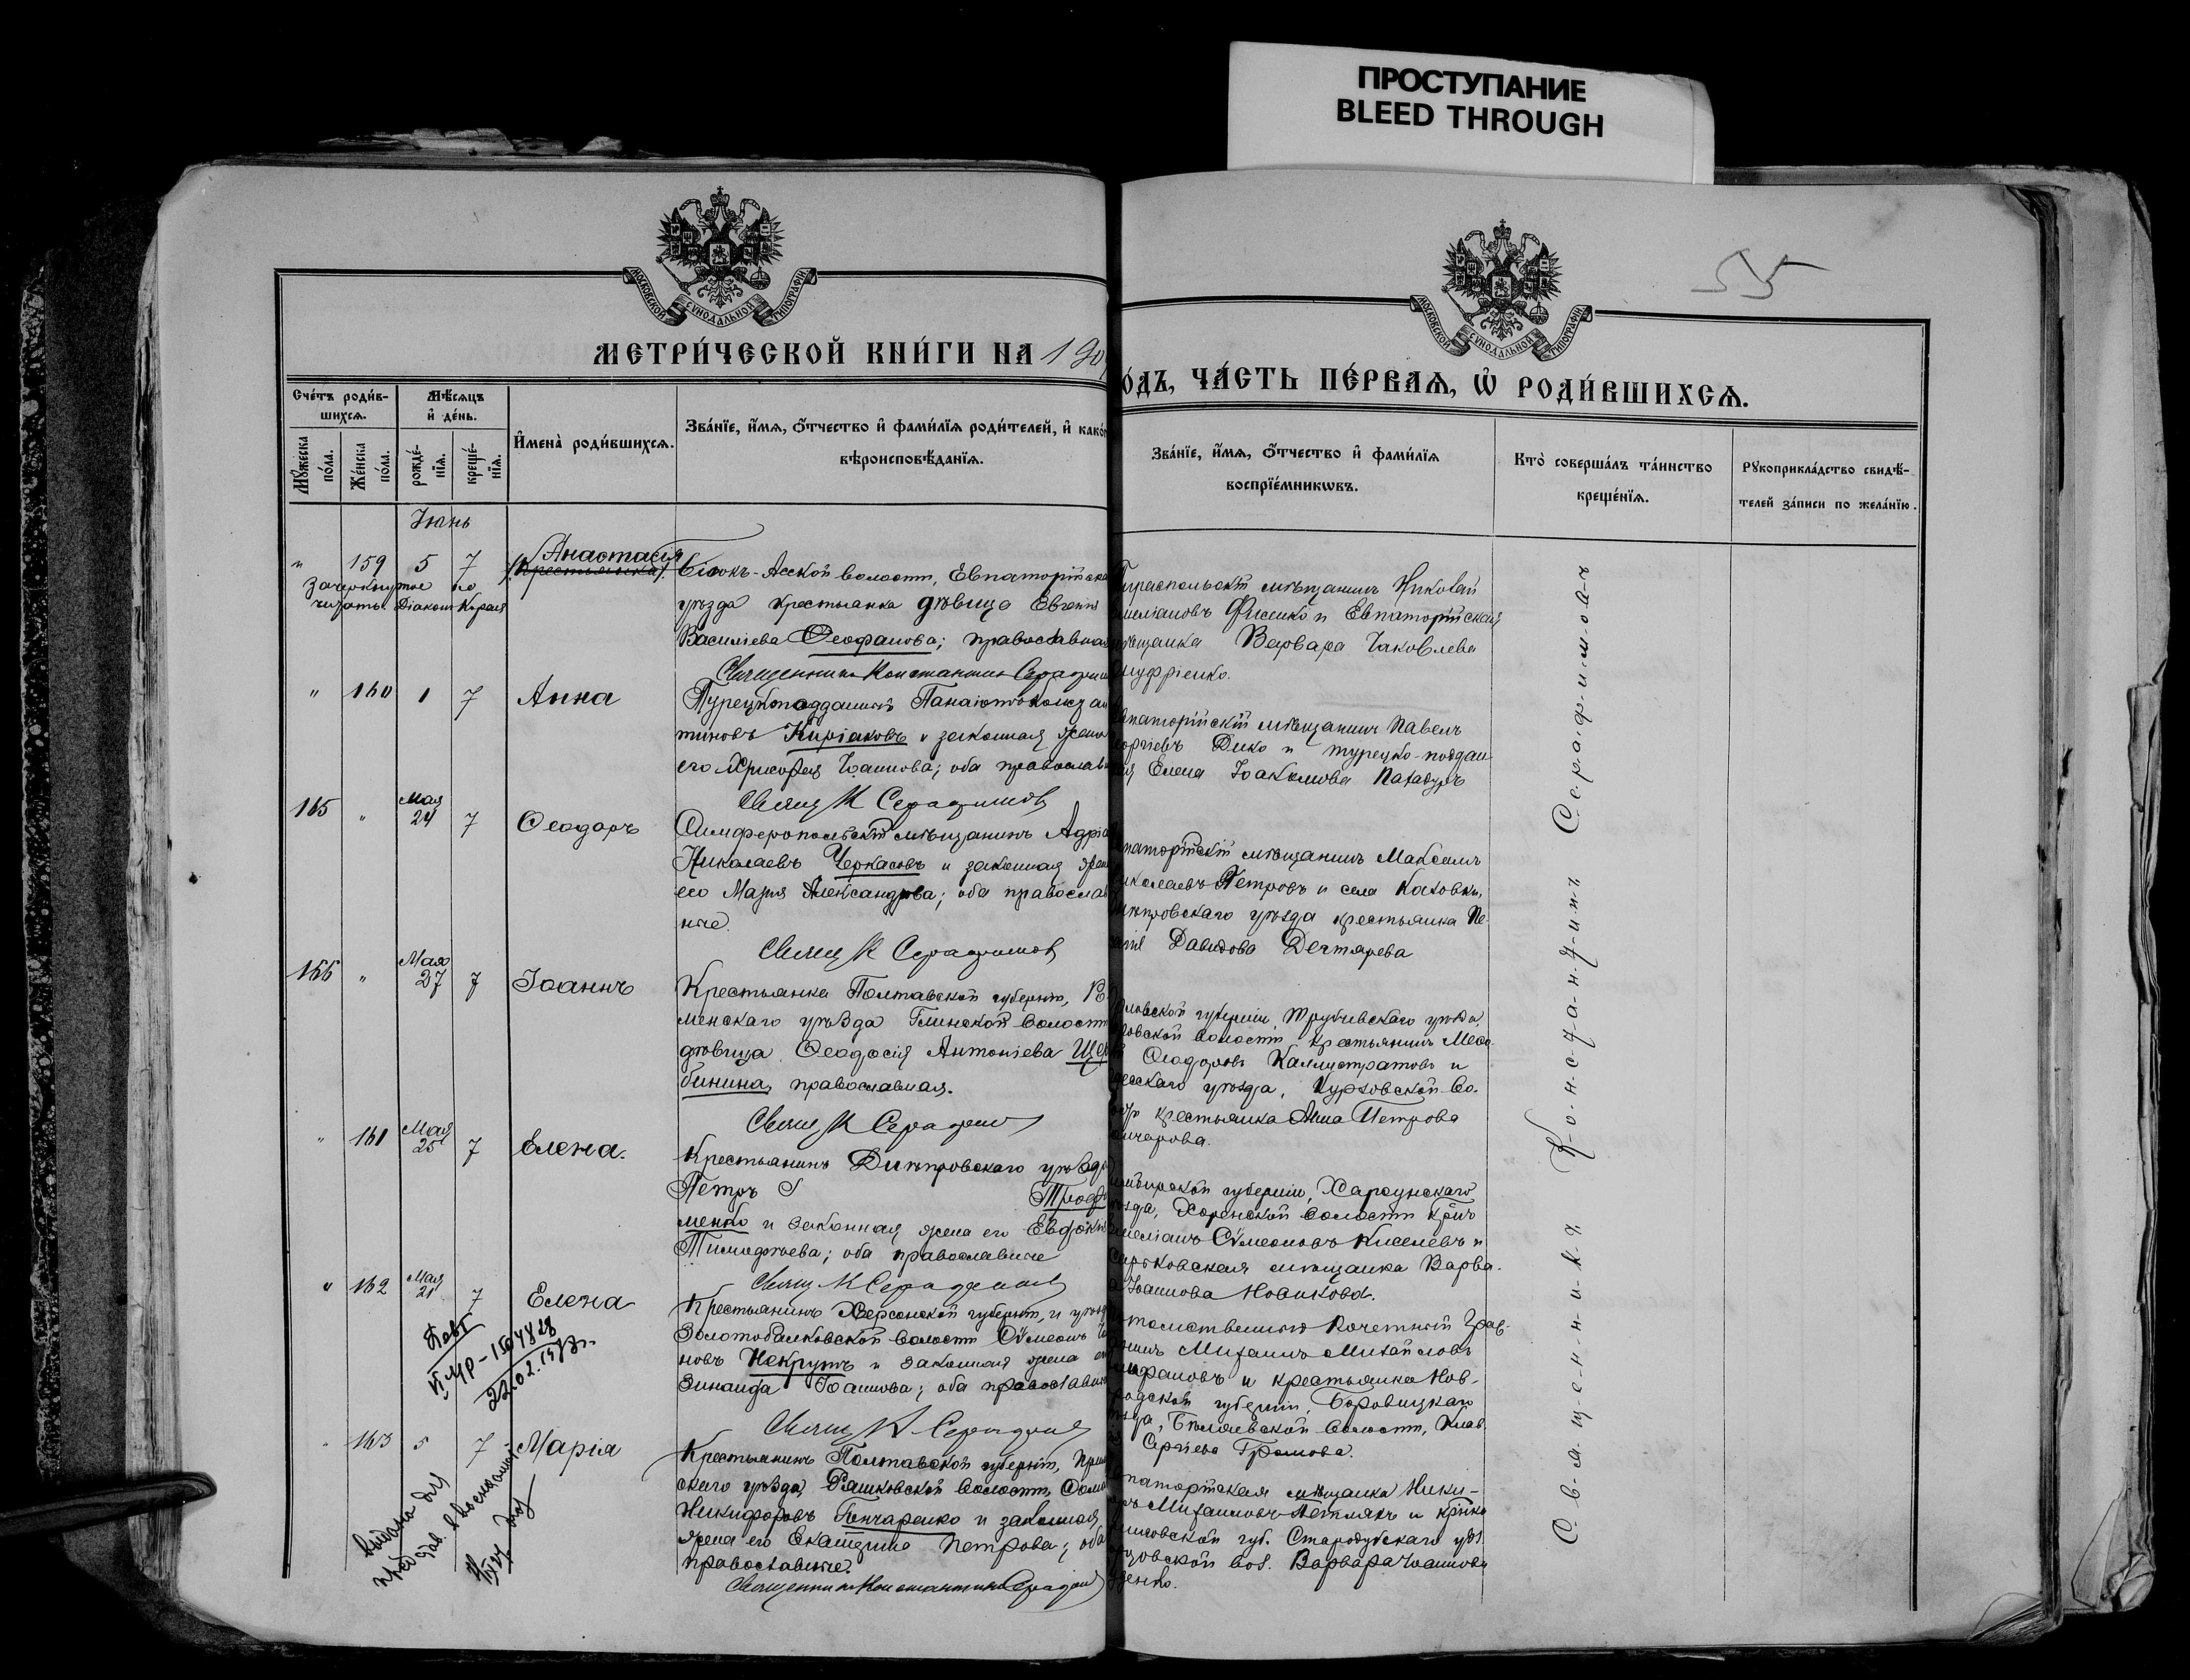 ПРОСТУПАНИЕ
BLEED THROUGH
55
МОСКОВСКОЙ СУНОДАЛЬНОЙ ТИПОГРАФІИ
МОСКОВСКОЙ СУНОДАЛЬНОЙ ТИПОГРАФІИ
МЕТРИ́ЧЕСКОЙ КНИ́ГИ НА 190
О́ДЪ, ЧА́СТЬ ПЕ́РВАѦ, Ѡ РОДИ́ВШИХСѦ.
Сче́тъ роди́в-
шихсѧ.
Мѣ́сѧцъ
и де́нь.
Мꙋ́жеска
по́ла.
Же́нска
по́ла.
рожде́-
нїѧ.
креще́-
нїѧ.
Имена̀ роди́вшихсѧ.
Зва́нїе, и́мѧ, о́тчество и фами́лїѧ роди́телей, и како́
вѣроисповѣ́данїѧ.
Зва́нїе, и́мѧ, о́тчество и фами́лїѧ
воспрїе́мникѡвъ.
Кто̀ соверша́лъ та́инство
креще́нїѧ.
Рꙋкоприкла́дство свидѣ́-
телей за́писи по жела́нїю.
Іюнь
" 159 5 7 Анастасія
Зачеркнутое не
читать. Діаконъ
Біюкъ-Асской волости, Евпаторійска
уѣзда крестьянка дѣвица Евгенія
Василіева Ѳеофанова; православная
Священникъ Константинъ Серафим
Тираспольскій мѣщанинъ Николай
Фисенко и Евпаторійская
мѣщанка Варвара Іаковлева
нуфріенко.
" 160 1 7 Анна
Турецкоподданный Панаіотъ Констан
тиновъ Киріаковъ и законная жена
его Хрисофея Іоаннова; оба православ
Свящ К Серафимов
впаторійскій мѣщанинъ Павелъ
еоргіевъ Дико и турецко-поддан
ая Елена Іоакимова Пападуръ
165 " Мая 24 7 Ѳеодоръ
Симферопольскій мѣщанинъ Адріа
Николаевъ Черкасовъ и законная жен
его Марія Александрова; оба православ
ные.
Свящ К Серафимов
впаторійскій мѣщанинъ Максимъ
иколаевъ Петровъ и села Каховки,
нѣпровскаго уѣзда крестьянка Пе-
Давидова Дегтярева
166 " Мая 27 7 Іоаннъ
Крестьянка Полтавской губерніи, Ро
менскаго уѣзда Глинской волости
дѣвица Ѳеодосія Антоніева Ще
бинина, православная.
Свящ К Серафимо
рловской губерніи, Трубчевскаго уѣзда,
ловской волости крестьянинъ
Ѳеодоровъ Каллистратовъ и
десскаго уѣзда, Курисовской во-
крестьянка Анна Петрова
ончарова.
" 161 Мая 25 7 Елена.
Крестьянинъ Днѣпровскаго уѣзда
Петръ Троф
менко и законная жена его Евдокі
Тимофѣева; оба православные
Свящ К Серафимов
имбирской губерніи, Харсунскаго
ѣзда, волости крн҃ъ
миліанъ Сѵмеоновъ Киселевъ и
арьковская мѣщанка Варва-
а Іоаннова Новикова.
" 162 Мая 21 7 Елена
Крестьянинъ Херсонской губерніи, и уѣзд
Золотобалковской волости Сѵмеонъ
новъ Некрутъ и законная жена ег
Зинаида Іоаннова; оба православны
Свящ К Серафимов
отомственный Почетный Граж-
нинъ Михаилъ Михайловъ
и крестьянка Нов-
родской губерніи, Боровицкаго
ѣзда, волости, Клав
Сергіева Громова.
22.02.
" 163 5 7 Марія
Крестьянинъ Полтавской губерніи,
скаго уѣзда, Рашковской волости,
Никифоровъ Гончаренко и законная
жена его Екатерина Петрова; оба
православные.
Священникъ Константинъ Серафим
впаторійская мѣщанка Ники-
Михаиловъ и крн҃ка
ниговской губ. Стародубскаго уѣз.
вол. Варвара Іоаннова
С-в-я-щ-е-н-н-и-к-ъ К-о-н-с-т-а-н-т-и-н-ъ С-е-р-а-ф-и-м-о-в-ъ